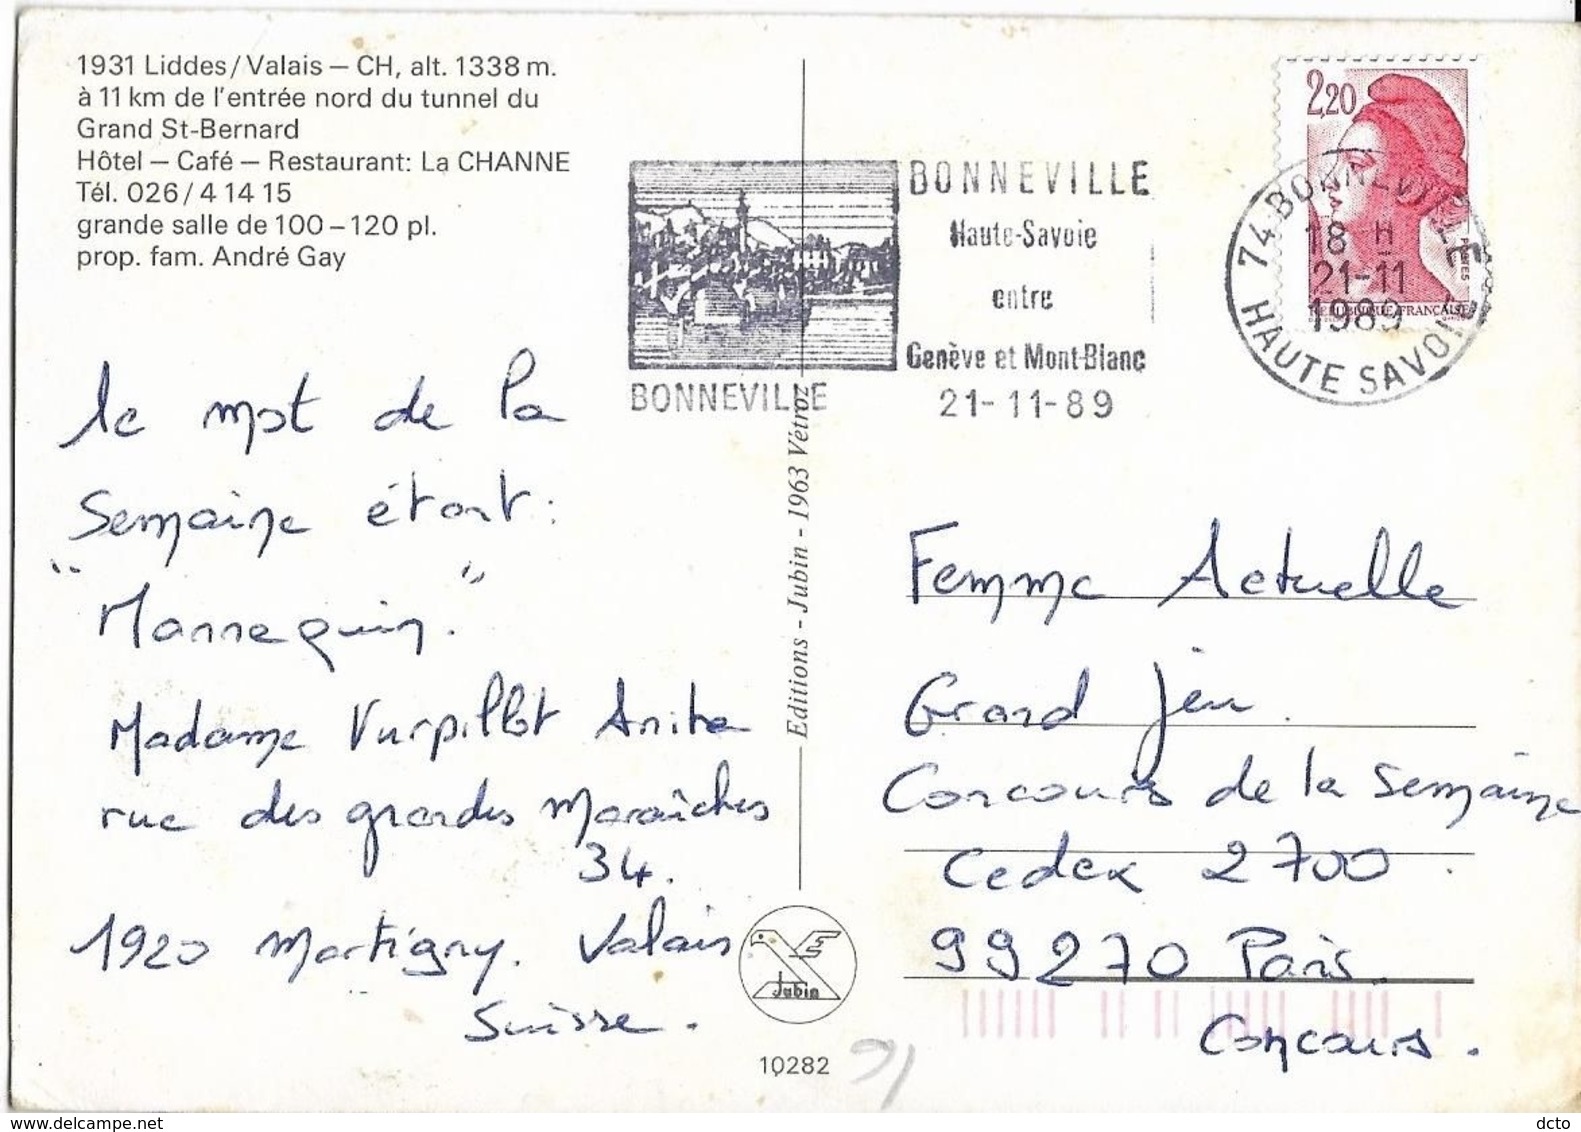 1931 Liddes/Valais – CH, alt. 1338 m.
à 11 km de l'entrée nord du tunnel du
Grand St-Bernard
Hôtel – Café – Restaurant: La CHANNE
Tél. 026/4 14 15
grande salle de 100–120 pl.
prop. fam. André Gay
le mot de la
Semaine étant:
"Mannequin."
Madame Vurpillot Anita
rue des grandes Maraîches
34.
1920 Martigny. Valais
Suisse.
BONNEVILLE
BONNEVILLE
Haute-Savoie
entre
Genève et Mont-Blanc
21-11-89
2,20
POSTES
REPUBLIQUE FRANÇAISE
74 BONNEVILLE
18 H
21-11
1989
HAUTE SAVOIE
Editions - Jubin - 1963 Vétroz
Femme Actuelle
Grand Jeu.
Concours de la Semaine
Cedex 2700.
99270 Paris.
Concours.
Jubin
10282
https://www.delcampe.net
dcto